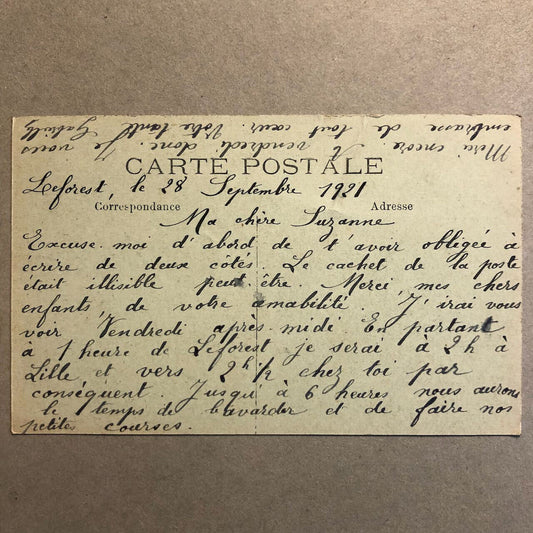 CARTE POSTALE
Leforest, le 28 Septembre 1921
Correspondance
Adresse
Ma chère Suzanne
Excuse-moi d'abord de t'avoir obligée à
écrire de deux côtés. Le cachet de la poste
était illisible peut-être. Merci, mes chers
enfants, de votre amabilité. J'irai vous
voir Vendredi après-midi. En partant
à 1 heure de Leforest je serai à 2h à
Lille et vers 2h 1/2 chez toi par
conséquent. Jusqu'à 6 heures nous aurons
le temps de bavarder et de faire nos
petites courses.
Merci encore. A vendredi donc. Je vous
embrasse de tout cœur. Votre tante